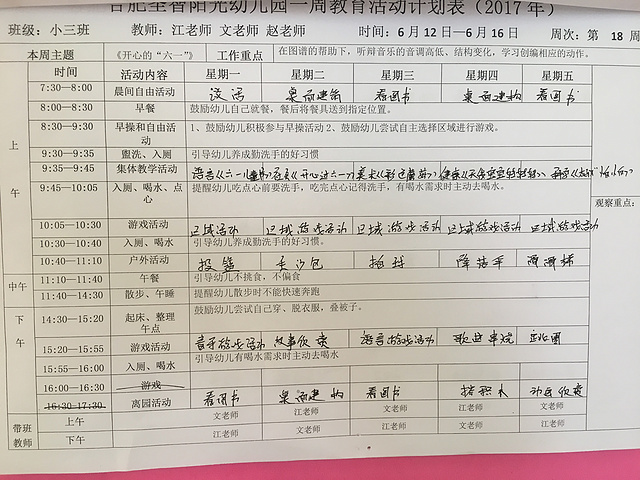 合肥至智阳光幼儿园一周教育活动计划表（2017 年）
班级：小三班 教师：江老师 文老师 赵老师 时间：6 月 12 日—6 月 16 日 周次：第 18 周
本周主题 《开心的“六一”》 工作重点 在图谱的帮助下，听辩音乐的音调高低、结构变化，学习创编相应的动作。
时间 活动内容 星期一 星期二 星期三 星期四 星期五
7:30—8:00 晨间自由活动 桌面建构 看图书 桌面建构 看图书
上午
8:00—8:30 早餐 鼓励幼儿自己就餐，餐后将餐具送到指定位置。
8:30—9:30 早操和自由活动 1、鼓励幼儿积极参与早操活动 2、鼓励幼儿尝试自主选择区域进行游戏。
9:30—9:35 盥洗、入厕 引导幼儿养成勤洗手的好习惯
9:35—9:45 集体教学活动
9:45—10:05 入厕、喝水、点心 提醒幼儿吃点心前要洗手，吃完点心记得洗手，有喝水需求时主动去喝水。
观察重点：
10:05—10:30 游戏活动 区域活动 区域游戏活动 区域游戏活动 区域游戏活动 区域游戏活动
10:30—10:40 入厕、喝水 引导幼儿养成勤洗手的好习惯。
10:40—11:10 户外活动 投篮 丢沙包 拍球
中午
11:10—11:40 午餐 引导幼儿不挑食，不偏食
11:40—14:30 散步、午睡 提醒幼儿散步时不能快速奔跑
下午
14:30—15:20 起床、整理午点 鼓励幼儿尝试自己穿、脱衣服，叠被子。
15:20—15:55 游戏活动 音乐游戏活动 故事欣赏 语言游戏活动
15:55—16:00 入厕、喝水 引导幼儿有喝水需求时主动去喝水
16:00—16:30 游戏
16:30-17:30 离园活动 看图书 桌面建构 看图书 搭积木 动画欣赏
带班教师 上午 文老师 江老师 文老师 江老师 文老师
下午 江老师 文老师 江老师 文老师 江老师